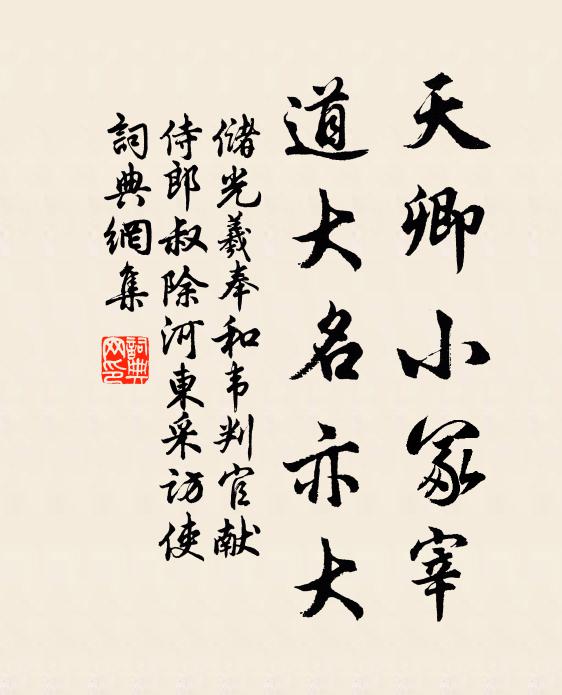 天卿小冢宰
道大名亦大
儲光羲奉和韦判官献
侍郎叔除河東采访使
詞典網集
詞典
网印